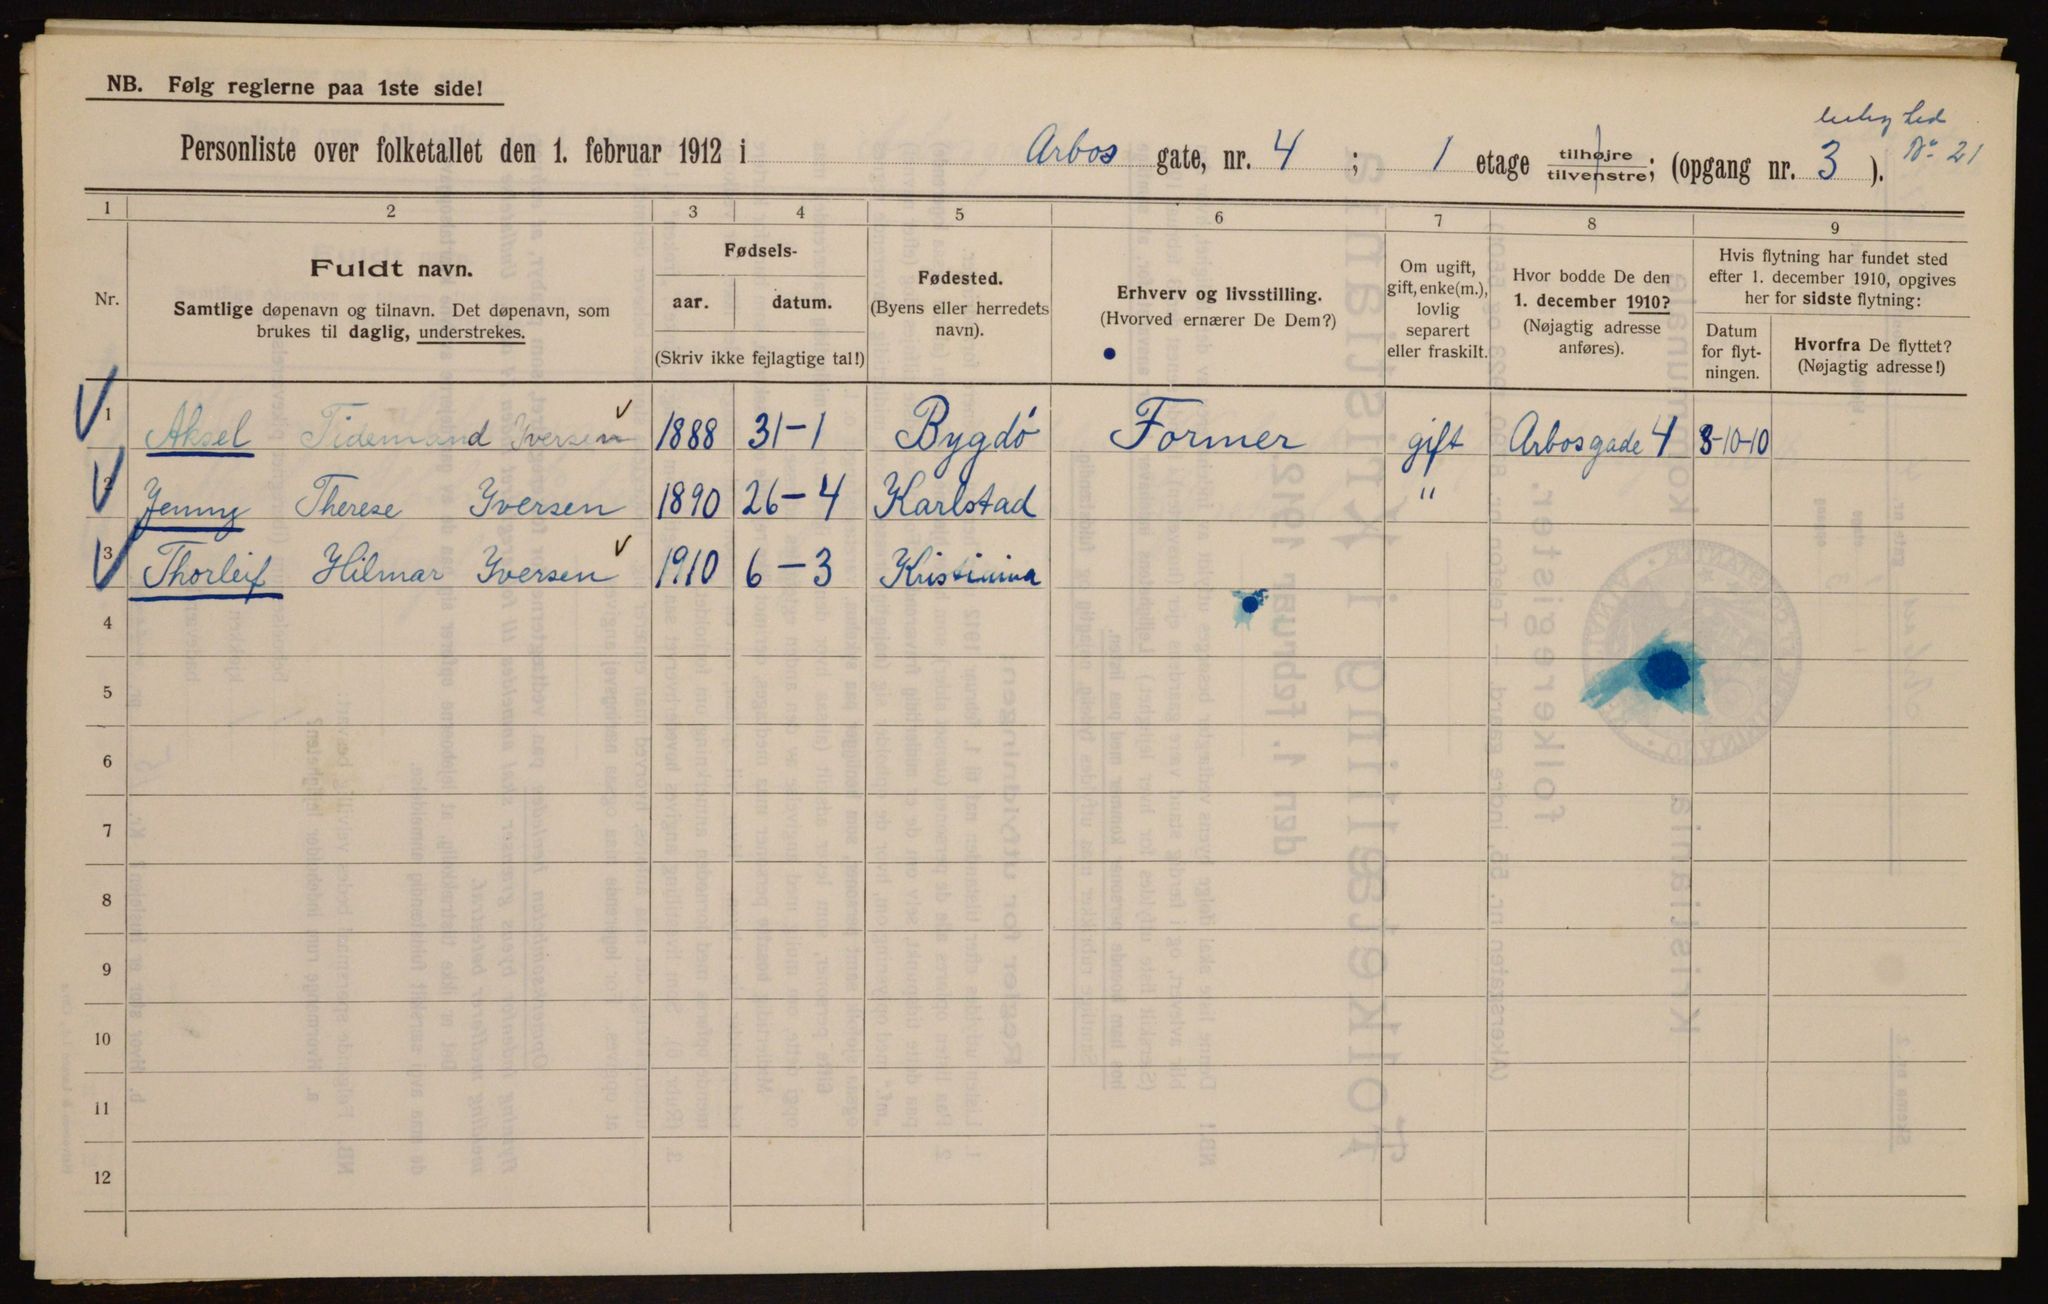 NB. Følg reglerne paa 1ste side!
Personliste over folketallet den 1. februar 1912 i Arbos gate, nr. 4 ; 1 etage tilhøjre tilvenstre; (opgang nr. 3 ).
No 21
1 2 3 4 5 6 7 8 9
Nr.
Fuldt navn.
Samtlige døpenavn og tilnavn. Det døpenavn, som
brukes til daglig, understrekes.
Fødsels-
aar. datum.
(Skriv ikke fejlagtige tal!)
Fødested.
(Byens eller herredets
navn).
Erhverv og livsstilling.
(Hvorved ernærer De Dem?)
Om ugift,
gift, enke(m.),
lovlig
separert
eller fraskilt.
Hvor bodde De den
1. december 1910?
(Nøjagtig adresse
anføres).
Hvis flytning har fundet sted
efter 1. december 1910, opgives
her for sidste flytning:
Datum
for flyt-
ningen.
Hvorfra De flyttet?
(Nøjagtig adresse!)
1 Aksel Tidemand Iversen 1888 31-1 Bygdö Former gift Arbosgade 4 8-10-10
2 Jenny Therese Iversen 1890 26-4 Karlstad "
3 Thorleif Hilmar Iversen 1910 6-3 Kristiania
4
5
6
7
8
9
10
11
12